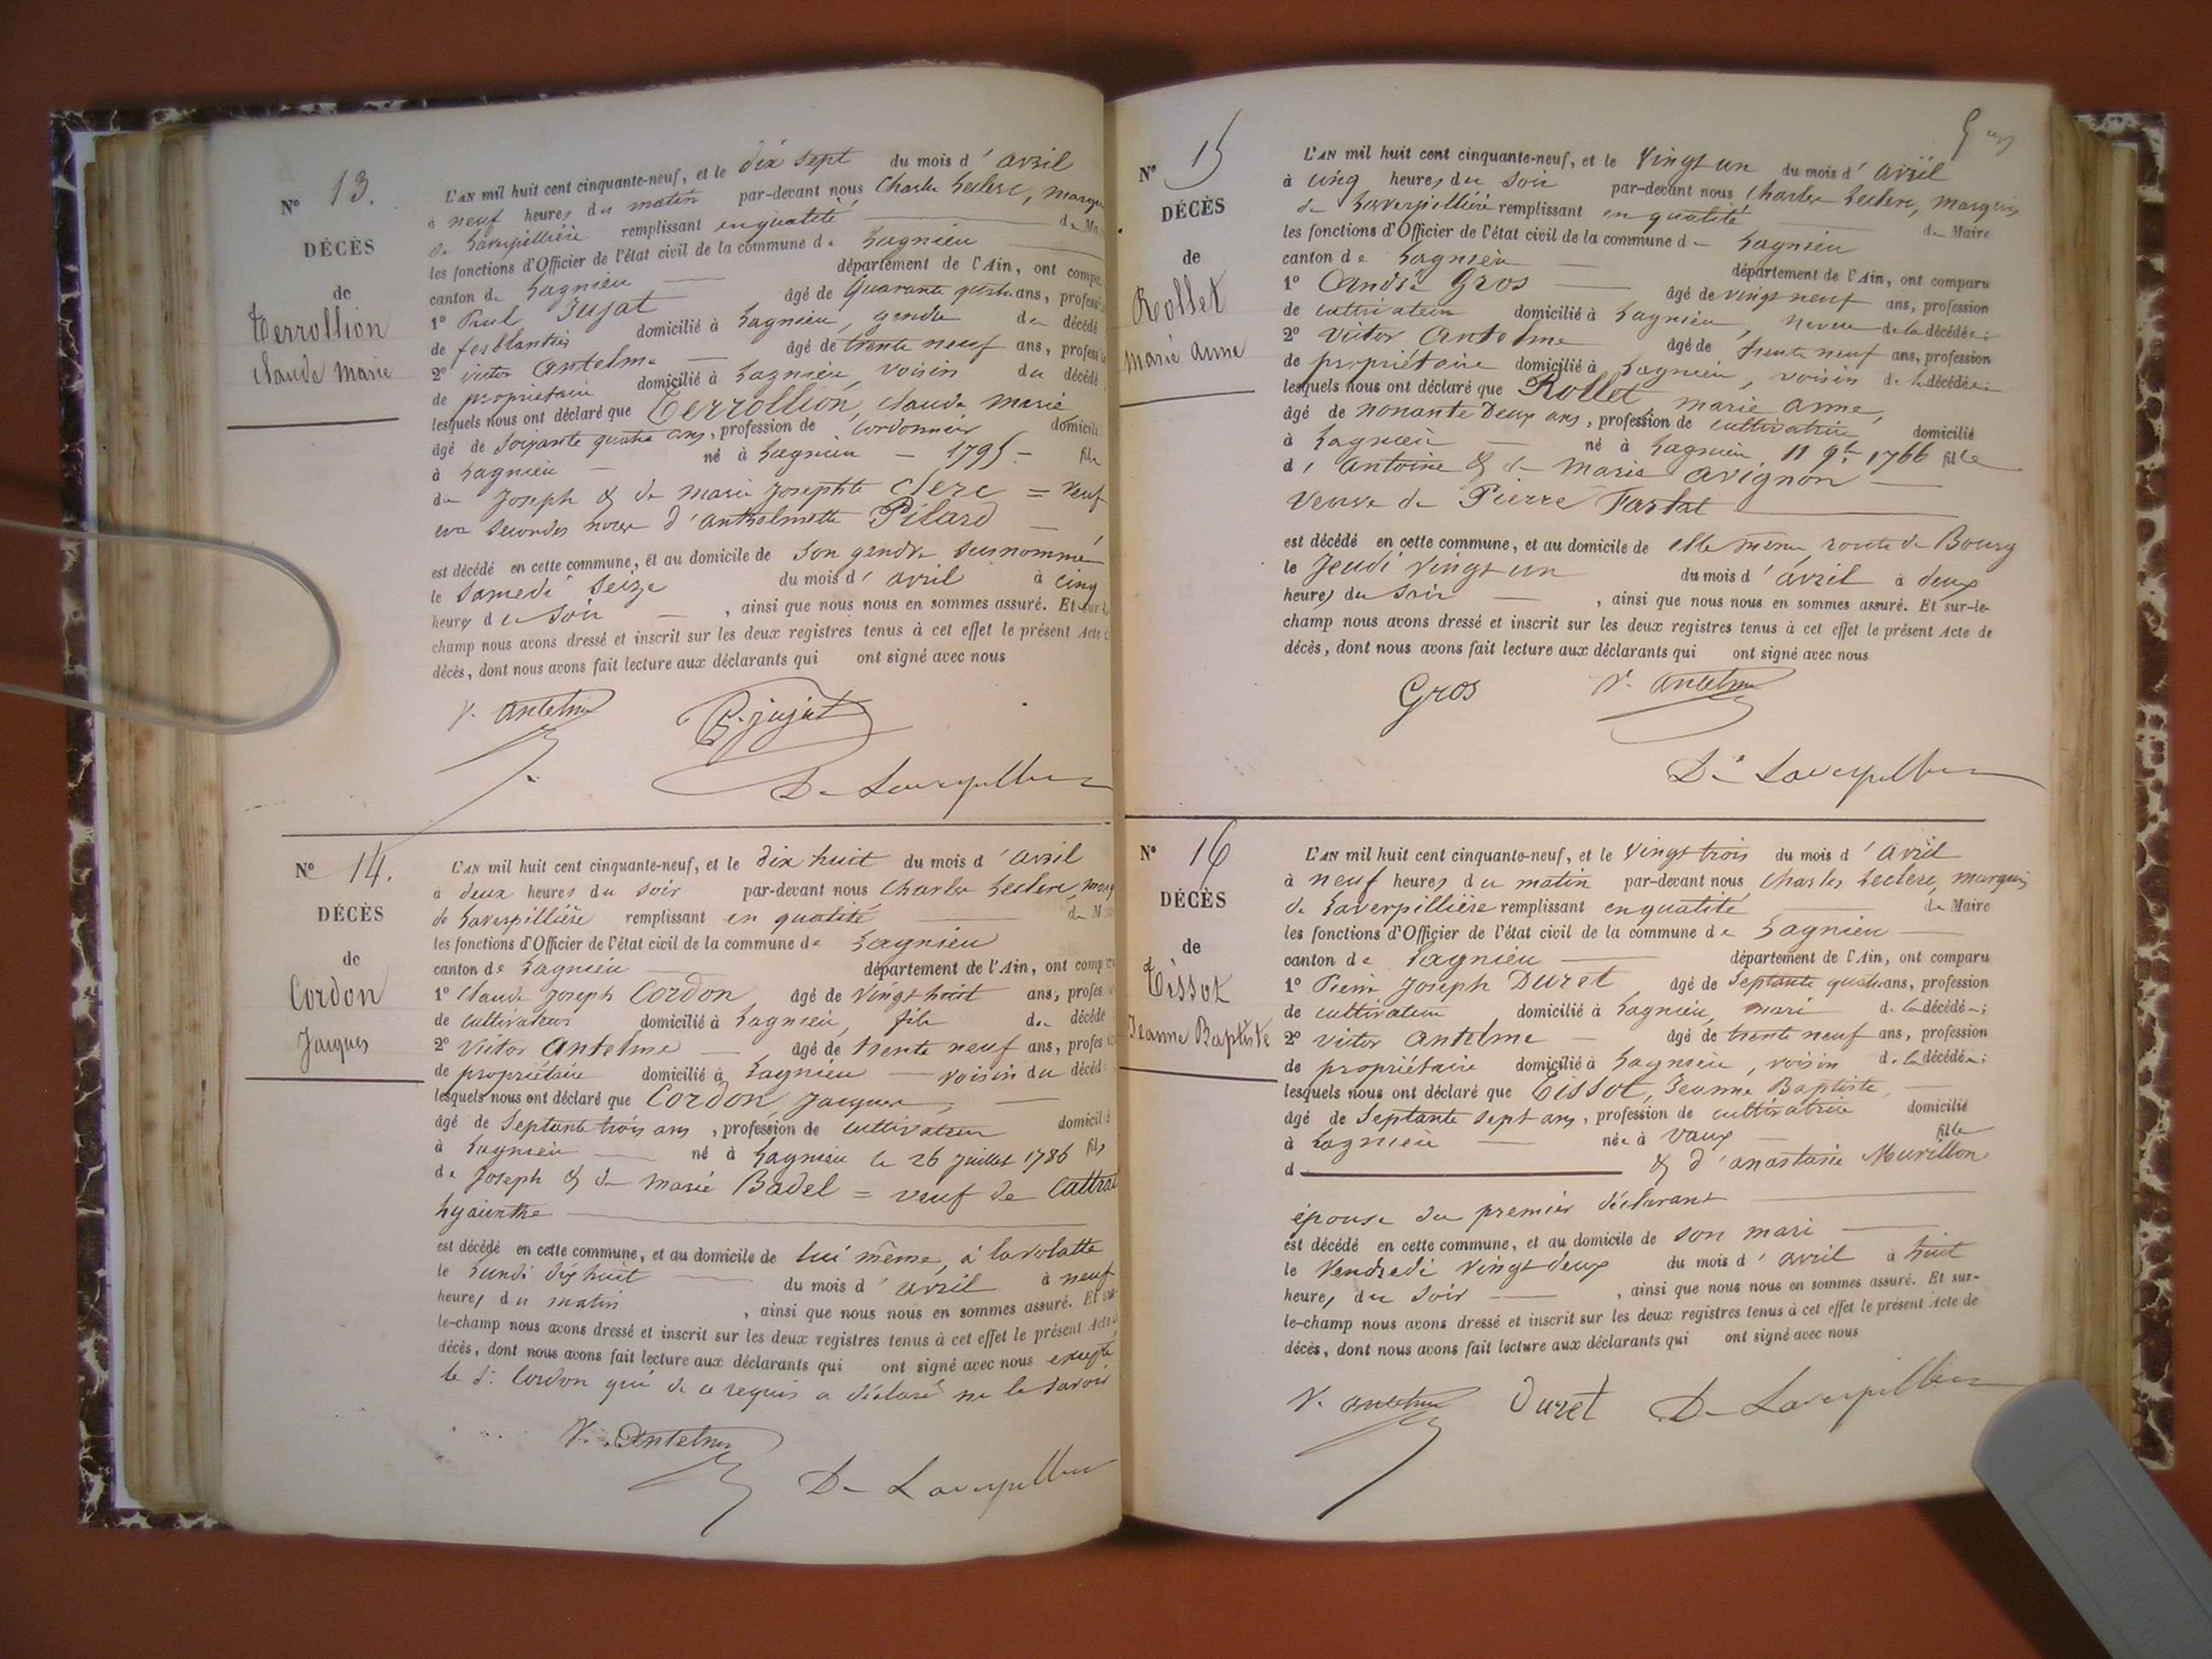 N° 13.
DÉCÈS
de
Terrollion
Claude Marie
L'AN mil huit cent cinquante-neuf, et le dix sept du mois d' avril
à neuf heures du matin par-devant nous Charles Leclerc, marqu
de Laverpillière remplissant en qualité de Ma
les fonctions d'Officier de l'état civil de la commune de Lagnieu
canton de Lagnieu département de l'Ain, ont compa
1° Paul Jujat âgé de Quarante ans, professi
de ferblantier domicilié à Lagnieu, gendre du décédé
2° victor antelme âgé de trente neuf ans, profess
de propriétaire domicilié à Lagnieu, voisin du décédé
lesquels nous ont déclaré que Terrollion, Claude Marie
âgé de soixante quatre ans, profession de cordonnier domicili
à Lagnieu né à Lagnieu - 1795 - fils
de Joseph & de Marie Josephte Clerc = veuf
en secondes noces d'anthelmette Pilard
est décédé en cette commune, et au domicile de son gendre susnommé
le Samedi seize du mois d' avril à cinq
heures du soir , ainsi que nous nous en sommes assuré. Et sur-le
champ nous avons dressé et inscrit sur les deux registres tenus à cet effet le présent Acte d
décès, dont nous avons fait lecture aux déclarants qui ont signé avec nous
V. Antelme P. jujat
De Laverpilliere
N° 14.
DÉCÈS
de
Cordon
Jacques
L'AN mil huit cent cinquante-neuf, et le dix huit du mois d' avril
à deux heures du soir par-devant nous Charles Leclerc, marq
de Laverpillière remplissant en qualité de M
les fonctions d'Officier de l'état civil de la commune de Lagnieu
canton de Lagnieu département de l'Ain, ont comp
1° Claude Joseph Cordon âgé de vingt huit ans, profes
de cultivateur domicilié à Lagnieu, fils du décédé
2° Victor Antelme âgé de trente neuf ans, profes
de propriétaire domicilié à Lagnieu voisin du décéd
lesquels nous ont déclaré que Cordon, Jacques,
âgé de septante trois ans, profession de cultivateur domicilié
à Lagnieu né à Lagnieu le 26 juillet 1786 fils
de Joseph & de marie Badel = veuf de
hyacinthe
est décédé en cette commune, et au domicile de lui même, à
le Lundi dix huit du mois d' avril à neuf
heures du matin , ainsi que nous nous en sommes assuré. Et sur-
le-champ nous avons dressé et inscrit sur les deux registres tenus à cet effet le présent Acte d
décès, dont nous avons fait lecture aux déclarants qui ont signé avec nous excepté
le Sr. Cordon qui de ce requis a déclaré ne le savoir
V. Antelme
De Laverpilliere
N° 15
DÉCÈS
de
Rollet
Marie Anne
L'AN mil huit cent cinquante-neuf, et le vingt un du mois d' avril
à cinq heures du soir par-devant nous Charles Leclerc, marquis
de Laverpillière remplissant en qualité de Maire
les fonctions d'Officier de l'état civil de la commune de Lagnieu
canton de Lagnieu département de l'Ain, ont comparu
1° André Gros âgé de vingt neuf ans, profession
de cultivateur domicilié à Lagnieu, neveu de la décédée;
2° Victor Antelme âgé de trente neuf ans, profession
de propriétaire domicilié à Lagnieu, voisin de la décédée;
lesquels nous ont déclaré que Rollet marie anne,
âgé de nonante Deux ans, profession de cultivatrice domicilié
à Lagnieu né à Lagnieu 11 9bre 1766 fille
d' Antoine & de Marie Avignon
Veuve de Pierre
est décédé en cette commune, et au domicile de elle même, route de Bourg
le Jeudi vingt un du mois d' avril à deux
heures du soir , ainsi que nous nous en sommes assuré. Et sur-le-
champ nous avons dressé et inscrit sur les deux registres tenus à cet effet le présent Acte de
décès, dont nous avons fait lecture aux déclarants qui ont signé avec nous
Gros V. Antelme
De Laverpilliere
N° 16
DÉCÈS
de
Tissot
Jeanne Baptiste
L'AN mil huit cent cinquante-neuf, et le vingt trois du mois d' avril
à neuf heures du matin par-devant nous Charles Leclerc, marquis
de Laverpillière remplissant en qualité de Maire
les fonctions d'Officier de l'état civil de la commune de Lagnieu
canton de Lagnieu département de l'Ain, ont comparu
1° Pierre Joseph Duret âgé de septante quatre ans, profession
de cultivateur domicilié à Lagnieu, mari de la décédée;
2° victor antelme âgé de trente neuf ans, profession
de propriétaire domicilié à Lagnieu, voisin de la décédée;
lesquels nous ont déclaré que Tissot, Jeanne Baptiste,
âgé de septante sept ans, profession de cultivatrice domicilié
à Lagnieu née à Vaux fille
d & d'anastasie Murillon
épouse du premier déclarant
est décédé en cette commune, et au domicile de son mari
le Vendredi vingt deux du mois d' avril à huit
heures du soir , ainsi que nous nous en sommes assuré. Et sur-
le-champ nous avons dressé et inscrit sur les deux registres tenus à cet effet le présent Acte de
décès, dont nous avons fait lecture aux déclarants qui ont signé avec nous
V. antelme Duret De Laverpilliere